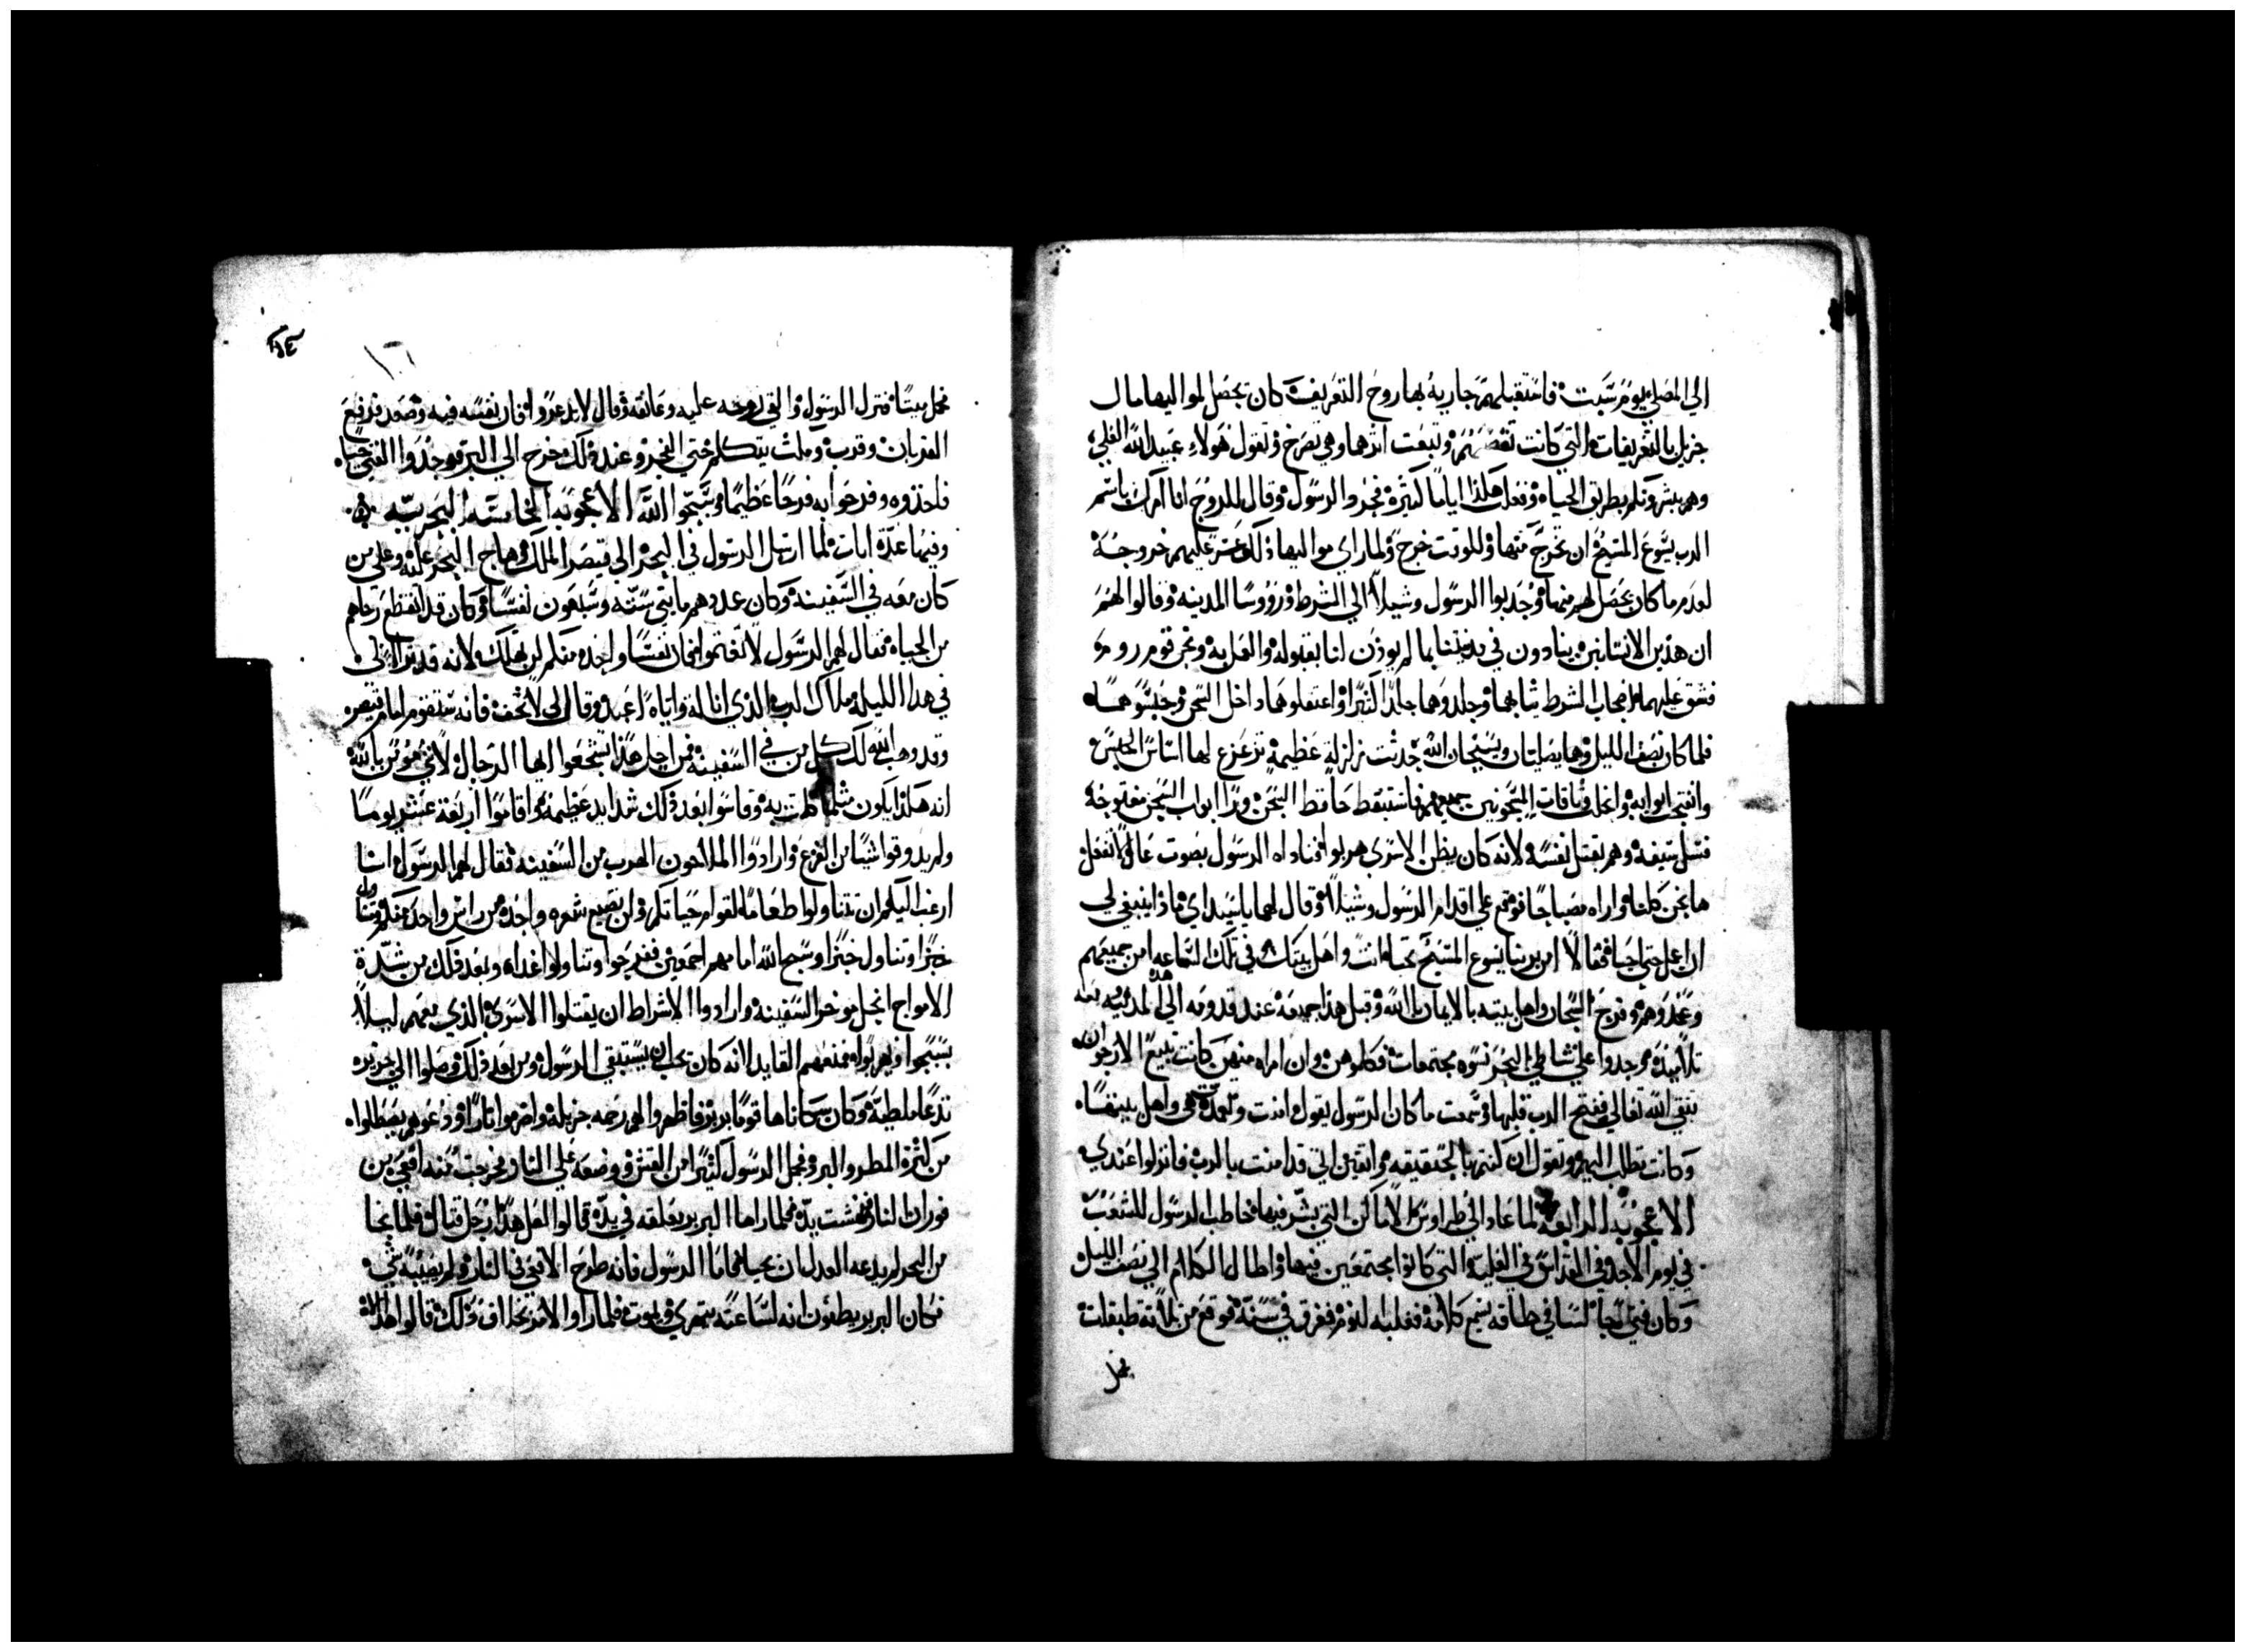 الي المصلي يوم سبت فاستقبلتهم جاريه بها روح التعريف كان تحصل لمواليها مال
جزيل بالتعريفات التي كانت وتبعت اثرهما وهي تصرخ وتقول هولاء عبيد الله العلي
وهم يبشرونكم بطريق الحياه وفعلت هكذا اياما كثيره فحرد الرسول وقال للروح انا امرك باسم
الرب يسوع المسيح ان تخرج منها وللوقت خرج ولما راي مواليها ذلك عليهم خروجه
لعدم ما كان يحصل لهم منها وجذبوا الرسول وشيلا الي الشرط وروسا المدينه وقالوا لهم
ان هذين الانسانين ينادون في مدينتنا بما لم يوذن لنا بقبوله والعمل به ونحن قوم روم
فشق عليهما اصحاب الشرط ثيابهما وجلدوهما جلدا كثيرا واعتقلوهما داخل السجن وحبسوهما
فلما كان نصف الليل وهما يصليان ويسبحان الله حدثت زلزلة عظيمة تزعزع لها اساس الحبس
وانفتحت ابوابه وانحل وثاقات المسجونين جميعهم فاستيقظ حافظ السجن وراا ابواب السجن مفتوحة
فسل سيفه وهم بقتل نفسه لانه كان يظن الاسري هربوا فناداه الرسول بصوت عال لا تفعل
ها نحن كلنا واراه مصباحا فوقع علي اقدام الرسول وشيلا وقال لهما يا سيداي ماذا ينبغي لي
ان اعمل حتي احيا فقالا امن بربنا يسوع المسيح تحيا انت واهل بيتك في تلك الساعه امن جميعهم
وعمدوهم وفرح السجان واهل بيته بالايمان بالله وقبل هذا جميعه عند قدومه الي هذه المدينه معه
تلاميذه وجدوا علي شاطي البحر نسوه مجتمعات فكلموهن وان امراه منهن كانت تبيع الارجوان
تتقي الله تعالي ففتح الرب قلبها وسمعت ما كان الرسول يقول وامنت وتعمدت هي واهل بيتها
وكانت تطلب اليهم وتقول ان كنتم بالحقيقه واثقين اني قد امنت بالرب فانزلوا عندي
الاعجوبه الرابعه لما عاد الي طراوس الاماكن التي بشر فيها خاطب الرسول للشعب
في يوم الاحد وفي القداس في العليه التي كانوا مجتمعين فيها واطال الكلام الي نصف الليل
وكان فتي جالسا في طاقه يسمع كلامه فغلبه النوم فغرق في سنة فوقع من ثلاثة طبقات
فحمل
١٠٦
فحمل ميتا فنزل الرسول والقي روحه عليه وعانقه وقال لا تذعروا فان نفسه فيه وصعد فرفع
القربان وقرب ومكث يتكلم حتي الفجر وعند ذلك خرج الي البر فوجدوا الفتي حيا
فاخذوه وفرحوا به فرحا عظيما وسبحوا الله الاعجوبه الخامسه البحريه
وفيها عدة ايات لما ارسل الرسول في البحر الي قيصر الملك وهاج البحر عليه وعلي من
كان معه في السفينه وكان عددهم مايتي سته وسبعون نفسا وكان قد انقطع رجاهم
من الحياه فقال لهم الرسول لا تغتموا فان نفسا واحده منكم لن تهلك لانه قد تراا لي
في هذا الليله ملاك الرب الذي انا له واياه اعبد وقال لي لا تخف فانه ستقوم امام قيصر
وقد وهب الله لك كل من في السفينه فمن اجل هذا تشجعوا ايها الرجال لاني مومن بالله
انه هكذا يكون مثلما كلمت به وقاسوا بعد ذلك شدايد عظيمه واقاموا اربعة عشر يوما
ولم يذوقوا شيا من الفزع وارادوا الملاحون الهرب من السفينه فقال لهم الرسول انا
ارغب اليكم ان تتناولوا طعاما لقوام حياتكم ولن يضيع شعره واحده من راس واحد منكم وتناول
خبزا وتناول خبزا وسبح الله امامهم اجمعين ففرحوا وتناولوا غداه وبعد ذلك من شدة
الامواج انحل موخر السفينه وارادوا الاشراط ان يقتلوا الاسري الذي معهم ليلا
يسبحوا ويهربوا فمنعهم القايد لانه كان يحب ان يستبقي الرسول ومن بعد ذلك وصلوا الي جزيره
تدعا ملطيه وكان سكاناها قوما بربر فاظهروا لهم رحمه جزيله واضرموا نارا ودعوهم يصطلوا
من كثرة المطر والبرد فحمل الرسول كثيرا من القش ووضعه علي النار وخرجت منه افعي من
فوران النار فنهشت يده فلما راها البربر معلقه في يده قالوا لعل هذا رجل قتال فلما نجا
من البحر لم يدعه العدل ان يحيا فاما الرسول فانه طرح الافعي في النار ولم يصيبه شي
فكان البربر يظنون انه لساعته يتهري ويموت فلما راوا الامر بخلاف ذلك قالوا هذا الاه